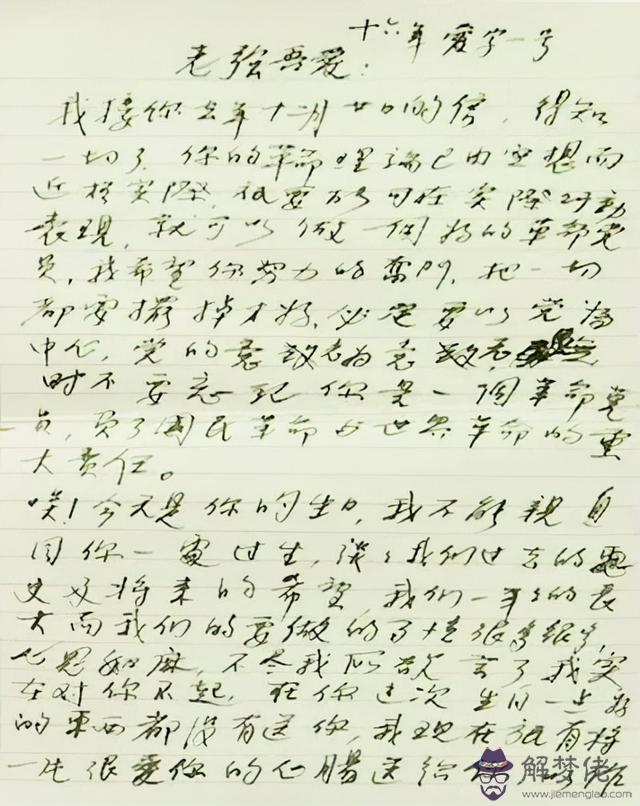 十六年 爱字一号
老張吾爱:
我接你去年十二月廿日的信, 得知
一切了, 你的革命理論已由空想而
近於实際, 祇要不以可在实際行动
表現, 就可以做一個好的革命党
員, 我希望你努力的奮鬥, 把一切
都要擺掉才好, 必定要以党為
中心, 党的意 为意
时不要忘記你是一個革命党
員, 负了國民革命与世界革命的重
大责任。
唉! 今天是你的生日, 我不能親自
同你一處过生, 談之我们过去的歷
史及将来的希望, 我们一年之的長
大而我们的要做的事情很多很多,
心思如麻, 不尽我所欲言了我实
在对你不起, 在你这次生日一点好
的東西都没有送你, 我現在祇有将
一片很爱你的心腸送给你
解梦佬
www.jiemenglao.com